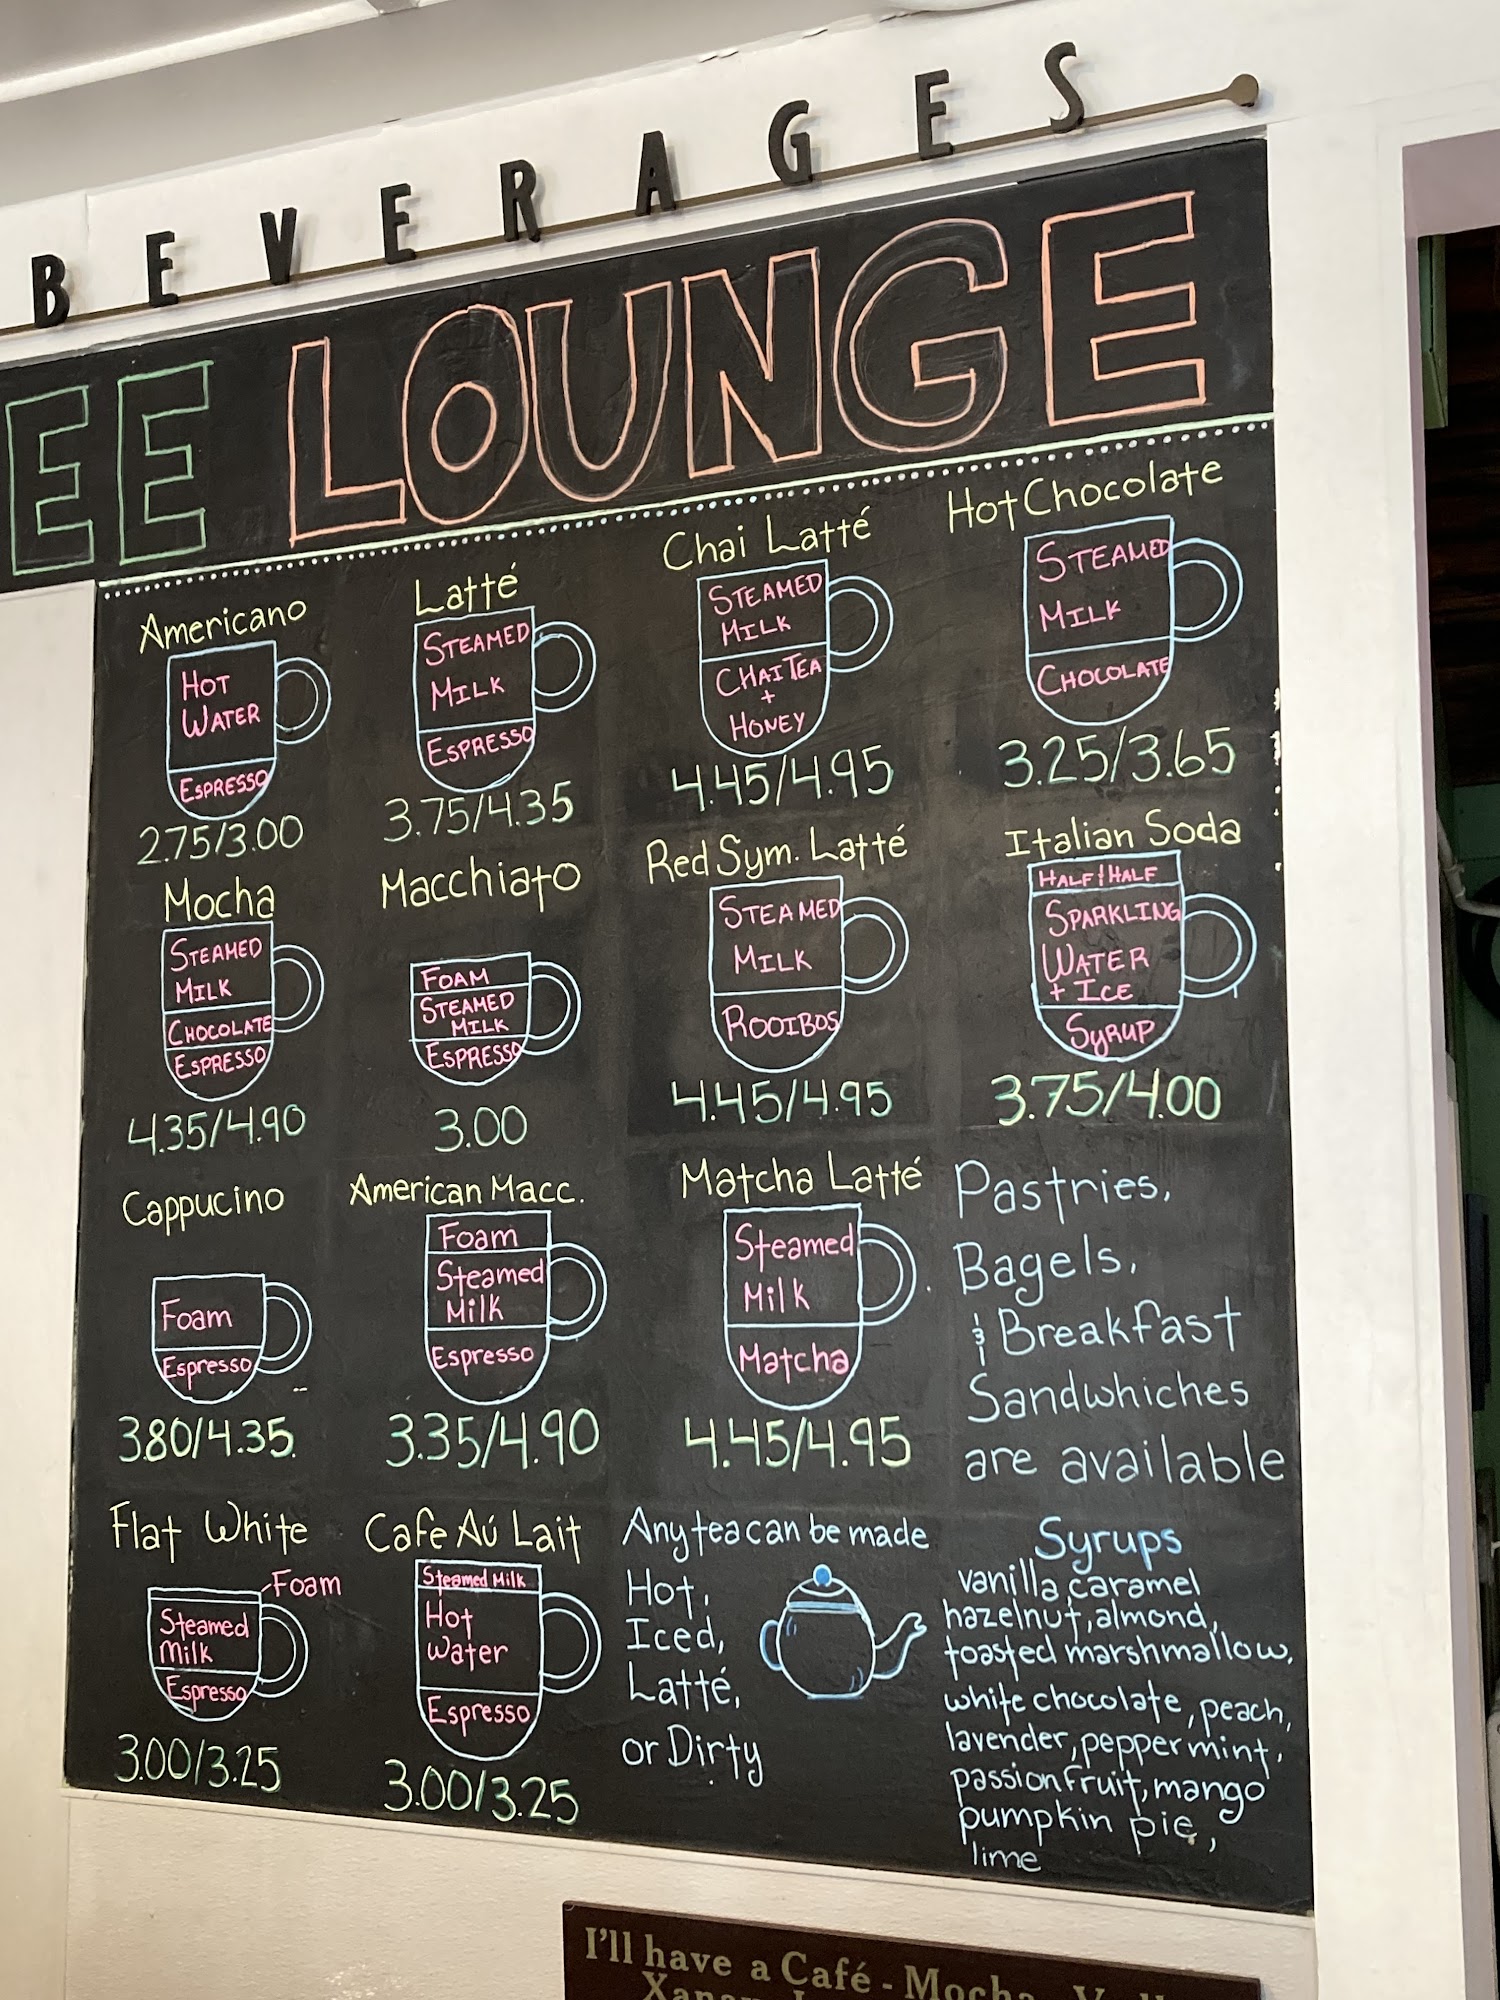 BEVERAGES
EE LOUNGE
Americano
HOT
WATER
ESPRESSO
2.75/3.00
Latté
STEAMED
MILK
ESPRESSO
3.75/4.35
Chai Latté
STEAMED
MILK
CHAI TEA
+
HONEY
4.45/4.95
Hot Chocolate
STEAMED
MILK
CHOCOLATE
3.25/3.65
Mocha
STEAMED
MILK
CHOCOLATE
ESPRESSO
4.35/4.90
Macchiato
FOAM
STEAMED
MILK
ESPRESSO
3.00
Red Sym. Latté
STEAMED
MILK
ROOIBOS
4.45/4.95
Italian Soda
HALF & HALF
SPARKLING
WATER
+ ICE
SYRUP
3.75/4.00
Cappucino
Foam
Espresso
3.80/4.35
American Macc.
Foam
Steamed
Milk
Espresso
3.35/4.90
Matcha Latté
Steamed
Milk
Matcha
4.45/4.95
Pastries,
Bagels,
& Breakfast
Sandwhiches
are available
Flat White
Foam
Steamed
Milk
Espresso
3.00/3.25
Cafe Aú Lait
Steamed Milk
Hot
Water
Espresso
3.00/3.25
Any tea can be made
Hot,
Iced,
Latté,
or Dirty
Syrups
vanilla, caramel
hazelnut, almond,
toasted marshmallow,
white chocolate, peach,
lavender, peppermint,
passionfruit, mango
pumpkin pie,
lime
I'll have a Café - Mocha